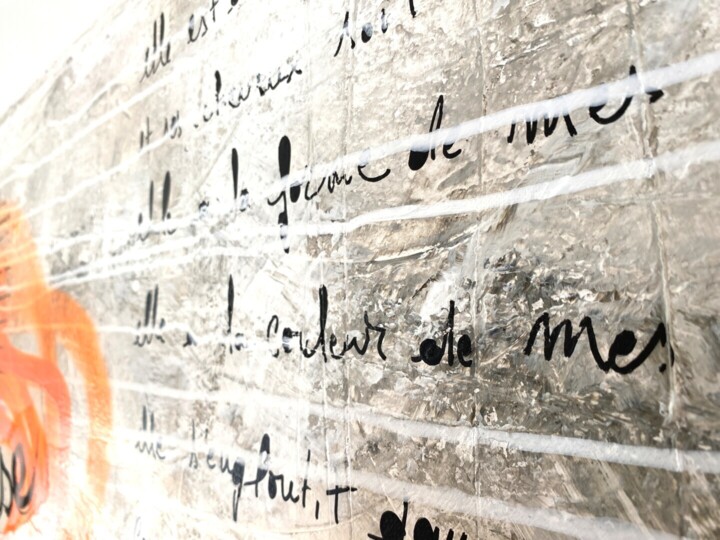 elle est
et ses cheveux sont
elle a la forme de mes
elle a la couleur de mes
elle s'engloutit